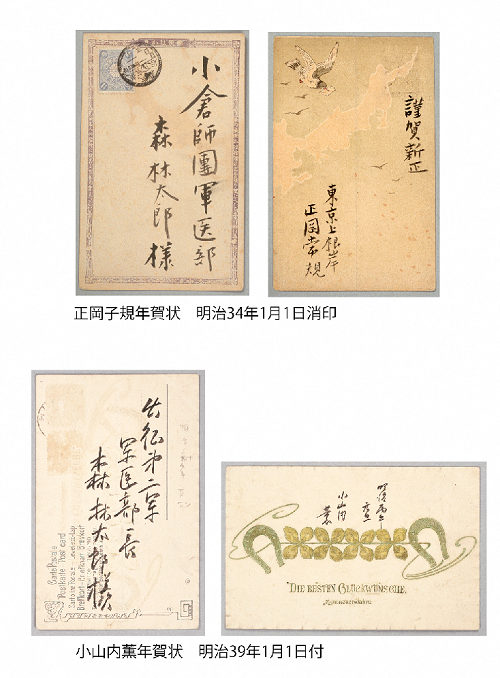 小倉師團軍医部
森林太郎様
謹賀新正
東京上根岸
正岡常規
正岡子規年賀状 明治34年1月1日消印
出征第二軍
軍医部長
森林太郎様
Carte Postale
Postkarte Post card
小山内
薫
DIE BESTEN GLÜCKWÜNSCHE.
小山内薫年賀状 明治39年1月1日付